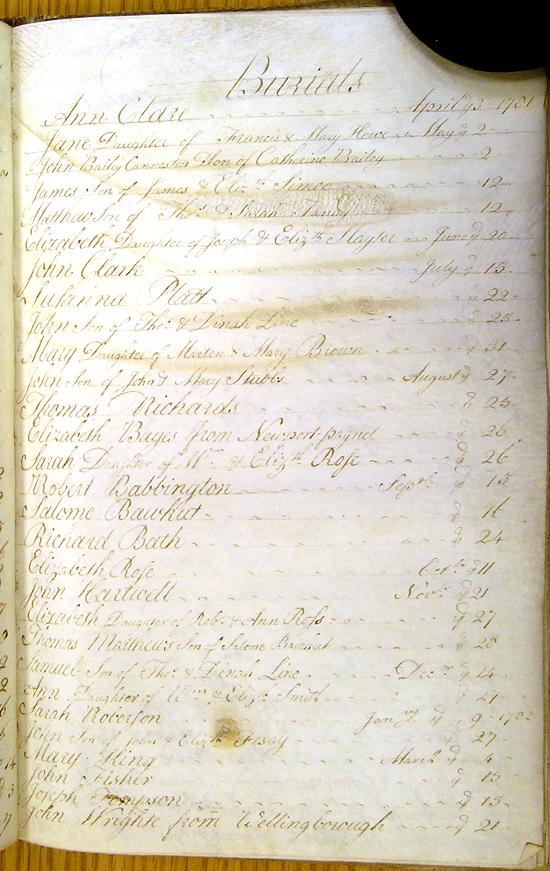 Burials
Ann Clare April y 3 1781
Jane Daughter of Francis & Mary Howe May y 2
John Bailey Son of Catherine Bailey 2
James Son of James & Eliz.th Simco 12
Matthew Son of Tho.s & Sarah 12
Elizabeth Daughter of Joseph & Eliz.th Hayter June y 20
John Clark July y 15
Susanna Platt 22
John Son of Tho.s & Dinah Line 25
Mary Daughter of Marten & Mary Brown y 31
John Son of John & Mary Stubbs August y 27
Thomas Richards y 25
Elizabeth Bayes from Newport-pagnel y 26
Sarah Daughter of W.m & Eliz.th Rose y 26
Robert Babbington Sept.r y 13
Salome Bawhut y 16
Richard Bath y 24
Elizabeth Rose Oct.r y 11
John Hartwell Nov.r y 21
Elizabeth Daughter of Rob.t & Ann Ross y 27
Thomas Matthews Son of Salome Bawhut y 28
Samuel Son of Tho.s & Dinah Line Dec.r y 14
Ann Daughter of W.m & Eliz.th Smith y 21
Sarah Roberson Jan.y y 9 178
John Son of John & Eliz.th y 27
Mary King March y 4
John Fisher y 13
Joseph Tompson y 15
John Wrighte from Wellingborough y 21